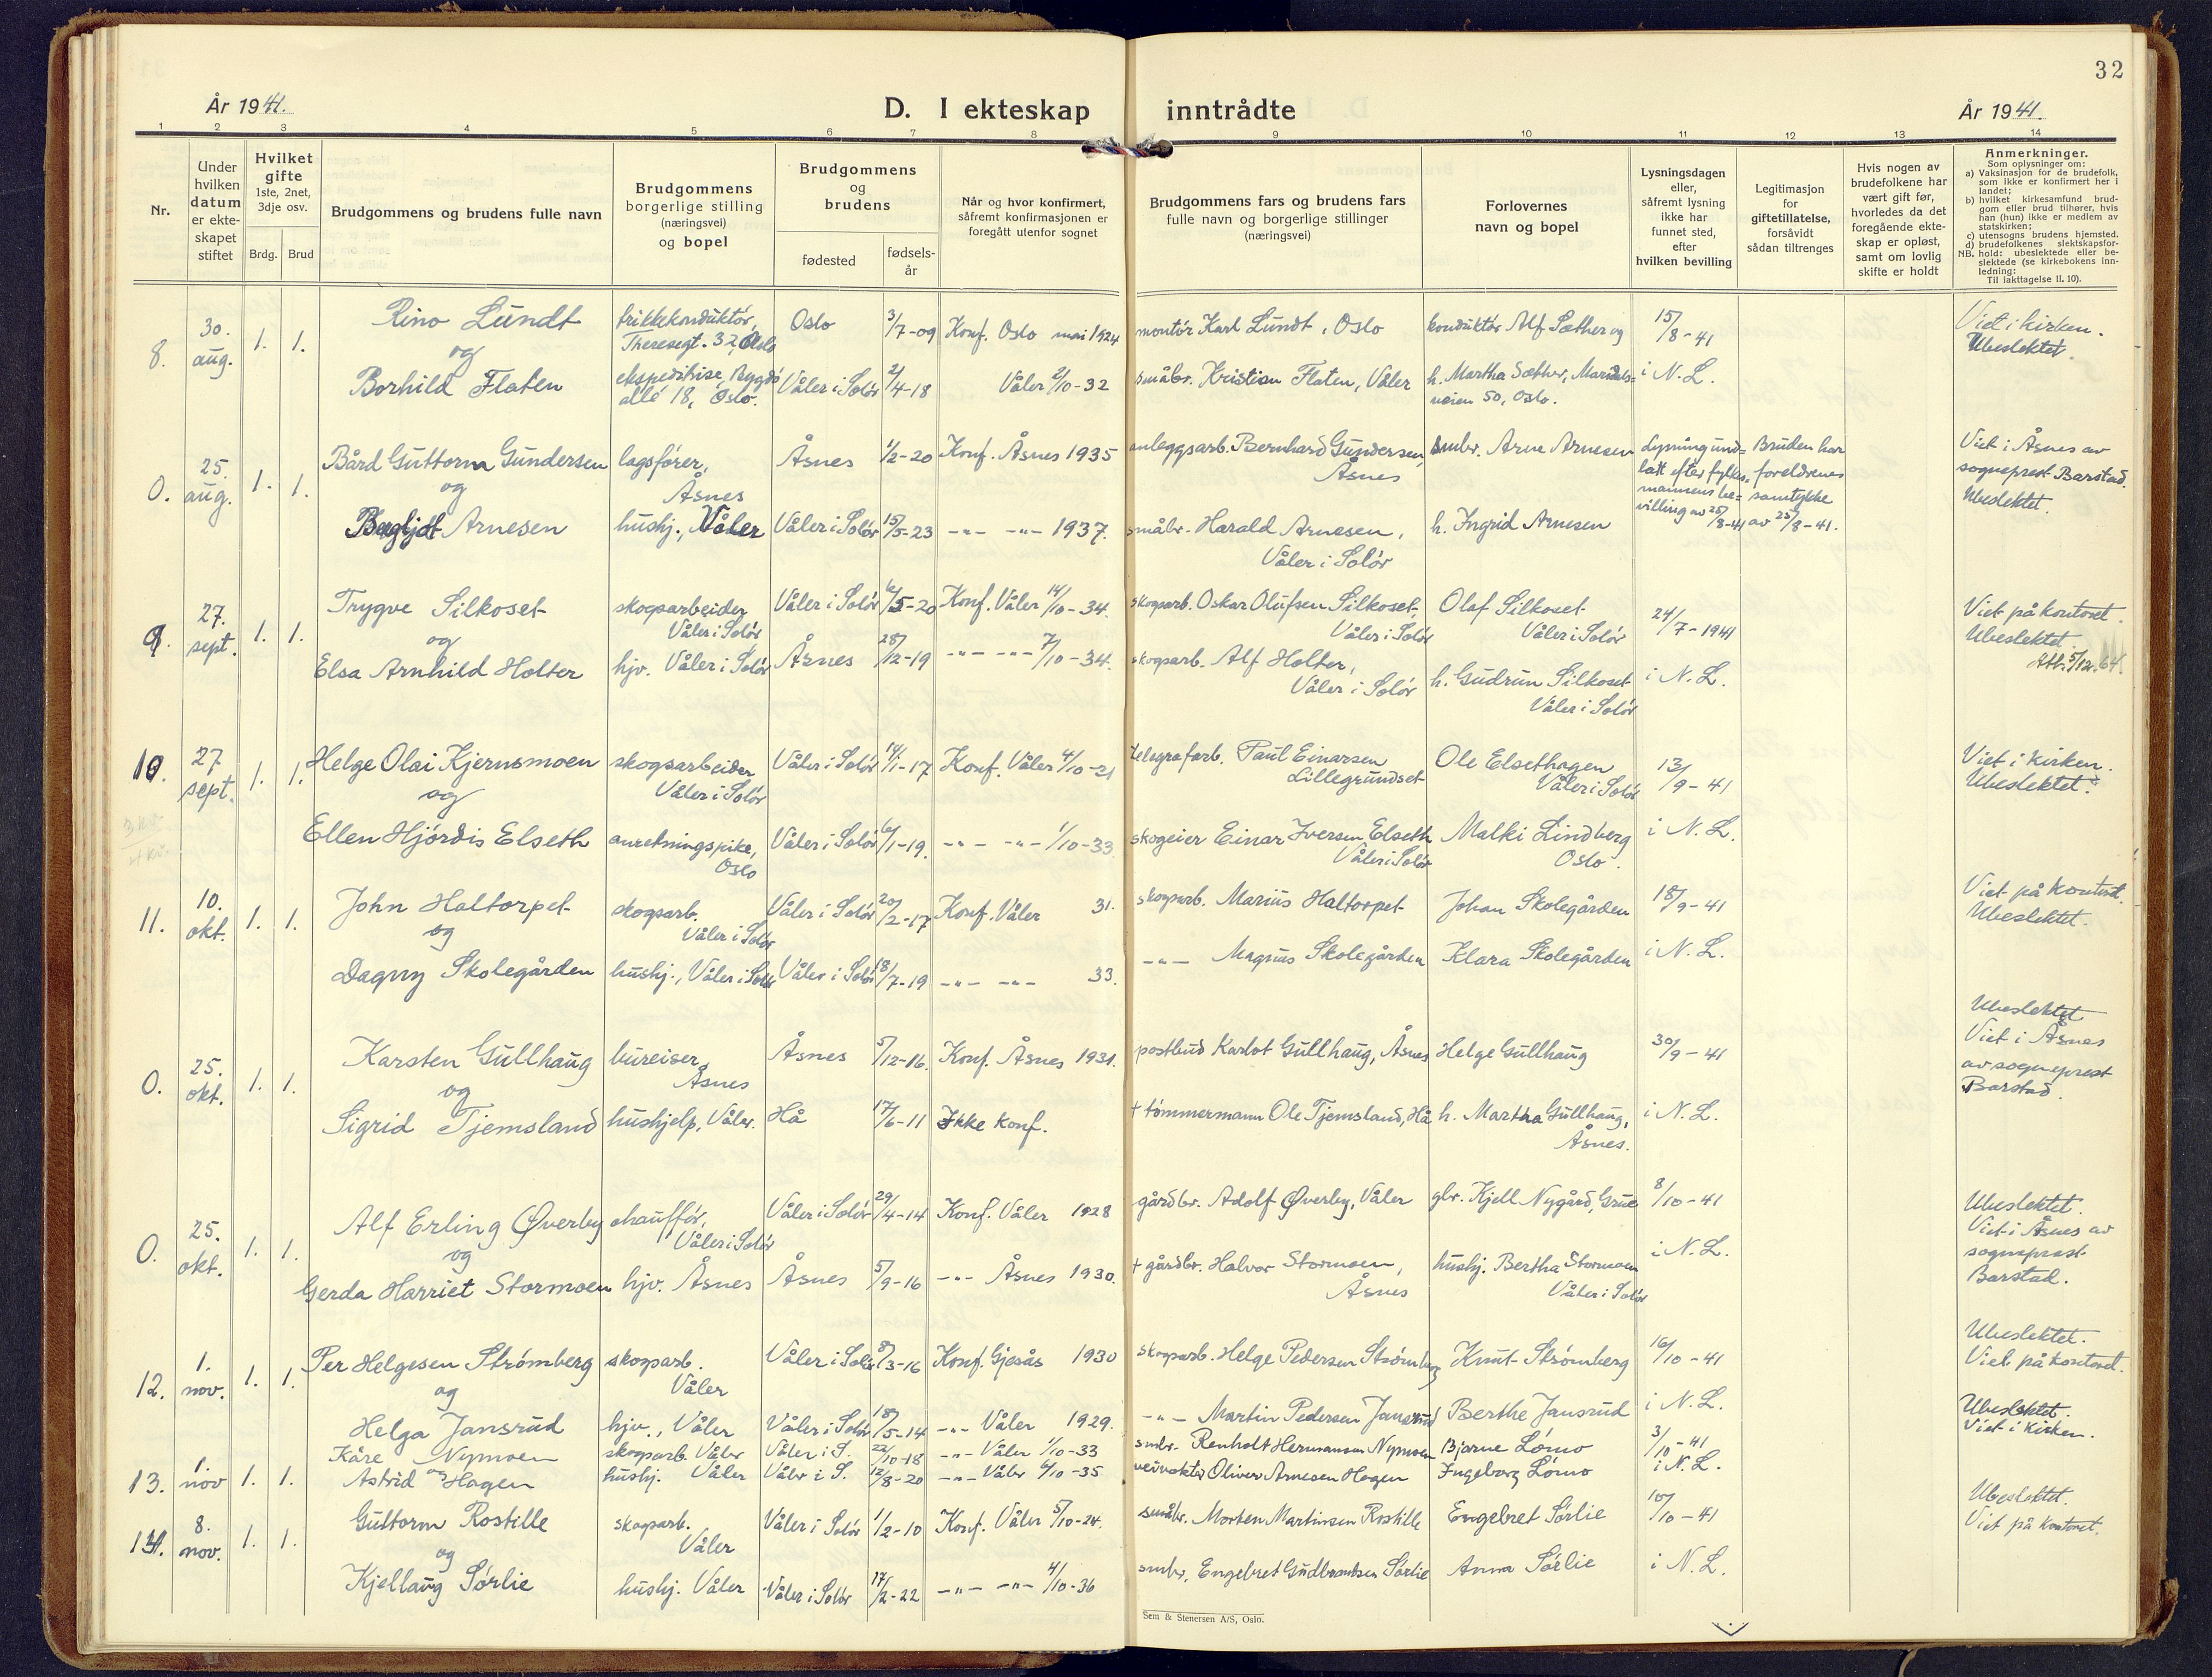 32
År 1941.
D. I ekteskap inntrådte
År 1941.
1 2 3 4 5 6 7 8 9 10 11 12 13 14
Nr.
Under
hvilken
datum
er ekte-
skapet
stiftet
Hvilket
gifte
1ste, 2net,
3dje osv.
Brdg. Brud
Brudgommens og brudens fulle navn
Brudgommens
borgerlige stilling
(næringsvei)
og bopel
Brudgommens
og
brudens
fødested
fødsels-
år
Når og hvor konfirmert,
såfremt konfirmasjonen er
foregått utenfor sognet
Brudgommens fars og brudens fars
fulle navn og borgerlige stillinger
(næringsvei)
Forlovernes
navn og bopel
Lysningsdagen
eller,
såfremt lysning
ikke har
funnet sted,
efter
hvilken bevilling
Legitimasjon
for
giftetillatelse,
forsåvidt
sådan tiltrenges
Hvis nogen av
brudefolkene har
vært gift før,
hvorledes da det
foregående ekte-
skap er opløst,
samt om lovlig
skifte er holdt
Anmerkninger.
Som oplysninger om:
a) Vaksinasjon for de brudefolk,
som ikke er konfirmert her i
landet;
b) hvilket kirkesamfund brud-
gom eller brud tilhører, hvis
han (hun) ikke er medlem av
statskirken;
c) utensogns brudens hjemsted.
d) brudefolkenes slektskapsfor-
NB. hold: ubeslektede eller be-
slektede (se kirkebokens inn-
ledning:
Til iakttagelse II. 10).
8.
30.
aug.
1. 1.
Rino Lundt
og
Borhild Flaten
trikkkonduktør,
Theresegt. 32, Oslo
ekspeditrise, Bygdø
allé 18, Oslo.
Oslo 3/7-09 Konf. Oslo mai 1924
Våler i Solør 2/4-18 Våler 2/10-32
montør Karl Lundt, Oslo
småbr. Kristian Flaten, Våler
konduktør Alf Sæther og
h. Martha Sæther, Maridals-
veien 50, Oslo.
15/8-41
i N. L.
Viet i kirken.
Ubeslektet.
0.
25.
aug.
1. 1.
Bård Guttorm Gundersen
og
Bergljot Arnesen
lagsfører,
Åsnes
hushj., Våler
Åsnes 1/2-20 Konf. Åsnes 1935
Våler i Solør 15/5-23 -"- -"- 1937.
anleggsarb. Bernhard Gundersen,
Åsnes
småbr. Harald Arnesen,
Våler i Solør
smbr. Arne Arnesen
h. Ingrid Arnesen
Lysning und-
latt efter fylkes-
mannens be-
villing av 25/8-41
Bruden har
foreldrenes
samtykke
av 25/8-41.
Viet i Åsnes av
sogneprest Barstad.
Ubeslektet.
9.
27.
sept.
1. 1.
Trygve Silkoset
og
Elsa Arnhild Holter
skogsarbeider
Våler i Solør
hjv. Våler i Solør
Våler i Solør 6/5-20 Konf. Våler 14/10-34.
Åsnes 28/12-19 -"- -"- 7/10-34.
skogsarb. Oskar Olufsen Silkoset
Våler i Solør
skogsarb. Alf Holter,
Våler i Solør
Olaf Silkoset
Våler i Solør
h. Gudrun Silkoset
Våler i Solør
24/7-1941
i N. L.
Viet på kontoret.
Ubeslektet.
Att. 5/12. 64.
10.
27
sept.
1. 1.
Helge Olai Kjernsmoen
og
Ellen Hjørdis Elseth
skogsarbeider
Våler i Solør
anretningspike,
Oslo
Våler i Solør 14/1-17 Konf. Våler 4/10-21
Våler i Solør 6/1-19. -"- -"- 1/10-33
telegrafarb. Paul Einarsen
Lillegrundset
skogeier Einar Iversen Elseth
Våler i Solør
Ole Elsethagen
Våler i Solør
Malki Lindberg
Oslo.
13/9-41
i N. L.
Viet i kirken.
Ubeslektet.
11.
10.
okt.
1. 1.
John Haltorpet
og
Dagny Skolegården
skogsarb.
Våler i Solør
hushj., Våler i Solør
Våler i Solør 20/2-17 Konf. Våler 31.
Våler i Solør 18/7-19 -"- -"- 33.
skogsarb. Marius Haltorpet
-"- Magnus Skolegården
Johan Skolegården
Klara Skolegården
18/9-41
i N. L.
Viet på kontoret.
Ubeslektet.
0.
25.
okt.
1. 1.
Karsten Gullhaug
og
Sigrid Tjemsland
bureiser
Åsnes
hushjelp, Våler.
Åsnes 5/12-16. Konf. Åsnes 1931.
Hå 17/6-11 Ikke konf.
postbud Karlot Gullhaug, Åsnes
+ tømmermann Ole Tjemsland, Hå
Helge Gullhaug
h. Martha Gullhaug,
Åsnes.
30/9-41
i N. L.
Ubeslektet
Viet i Åsnes
av sogneprest
Barstad.
0.
25.
okt.
1. 1.
Alf Erling Øverby
og
Gerda Harriet Stormoen
chauffør,
Våler i Solør
hjv. Åsnes
Våler i Solør 29/4-14 Konf. Våler 1928
Åsnes 5/9-16 -"- Åsnes 1930.
gårdbr. Adolf Øverby, Våler
+ gårdbr. Halvor Stormoen,
Åsnes
gbr. Kjell Nygård, Grue
hushj. Bertha Stormoen
Våler i Solør
8/10-41
i N. L.
Ubeslektet.
Viet i Åsnes av
sogneprest
Barstad.
12.
1.
nov.
1. 1.
Per Helgesen Strømberg
og
Helga Jansrud
skogsarb.
Våler
hjv., Våler
Våler i Solør 8/3-16 Konf. Gjesås 1930
Våler i Solør 18/5-14 -"- Våler 1929.
skogsarb. Helge Pedersen Strømberg
-"- Martin Pedersen Jansrud
Knut Strømberg
Berthe Jansrud
16/10-41
i N. L.
Ubeslektet.
Viet på kontoret.
13.
1.
nov
1. 1.
Kåre Nymoen
og
Astrid Hagen
skogsarb. Våler
hushj. Våler
Våler i S. 22/10-18 -"- Våler 1/10-33
Våler i S. 12/8-20 -"- Våler 6/10-35
smbr. Renholt Hermansen Nymoen
veivokter Oliver Arnesen Hagen
Bjarne Lømo
Ingeborg Lømo
3/10-41
i N. L.
Ubeslektet.
Viet i kirken.
14.
8.
nov.
1. 1.
Guttorm Rostille
og
Kjellaug Sørlie
skogsarb.
Våler
hushj. Våler
Våler i Solør 1/2-10 Konf. Våler 5/10-24.
Våler i Solør 17/2-22 -"- -"- 4/10-36
småbr. Morten Martinsen Rostille
smbr. Engebret Gudbrandsen Sørlie
Engebret Sørlie
Anna Sørlie
10/10-41
i N. L.
Ubeslektet.
Viet på kontoret.
Sem & Stenersen A/S, Oslo.